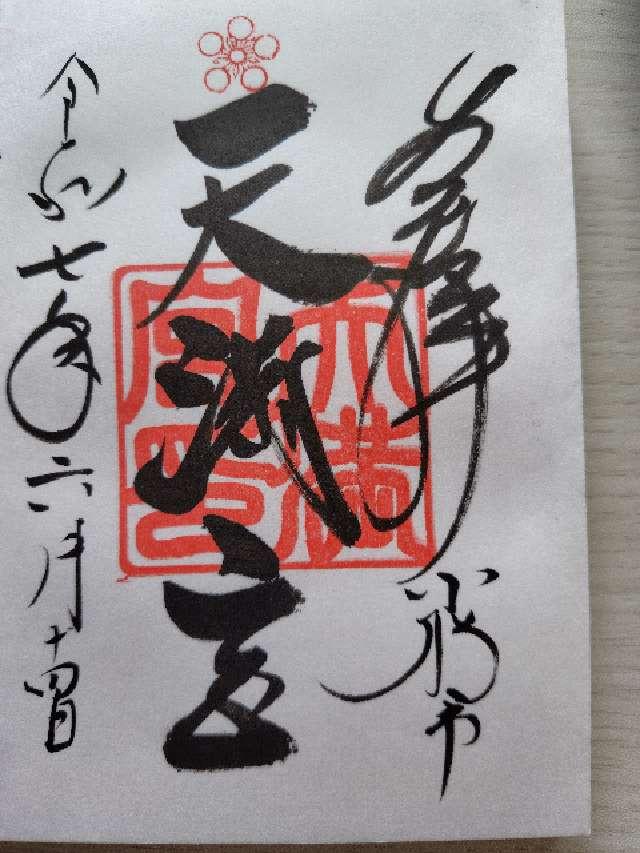 奉拝
天満宮
令和七年六月十四日
天満宮印